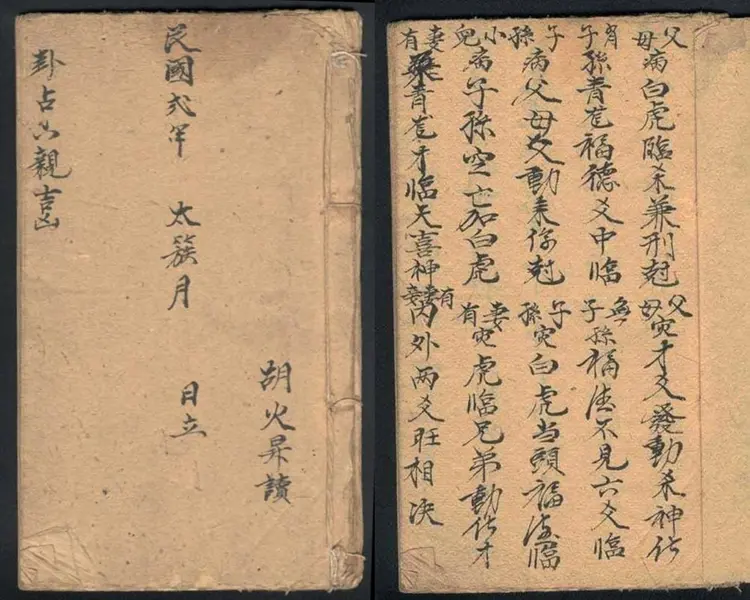 胡火昇讀
民國弍年 太簇月 日立
卦占六親吉凶
父母病白虎臨杀兼刑尅
有子孫青龍福德爻中臨
子孫病父母爻動来伤尅
小兒病子孫空亡加白虎
有妻青龍才臨天喜神
父母灾才爻發動杀神化
無子孫福德不見六爻臨
子孫灾白虎当頭福德臨
有妻灾虎臨兄弟動化才
有妻妾内外两爻旺相决